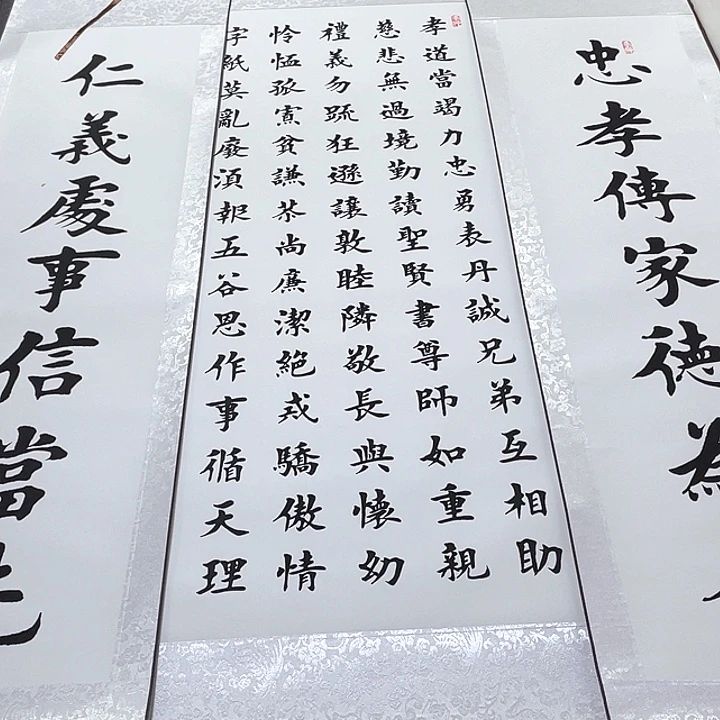 忠孝傳家德為
孝道當竭力忠勇表丹誠兄弟互相助
慈悲無過境勤讀聖賢書尊師如重親
禮義勿疏狂遜讓敦睦隣敬長與懷幼
怜恤孤寡貧謙恭尚廉潔絕戒驕傲情
字紙莫亂廢須報五谷恩作事循天理
仁義處事信當先